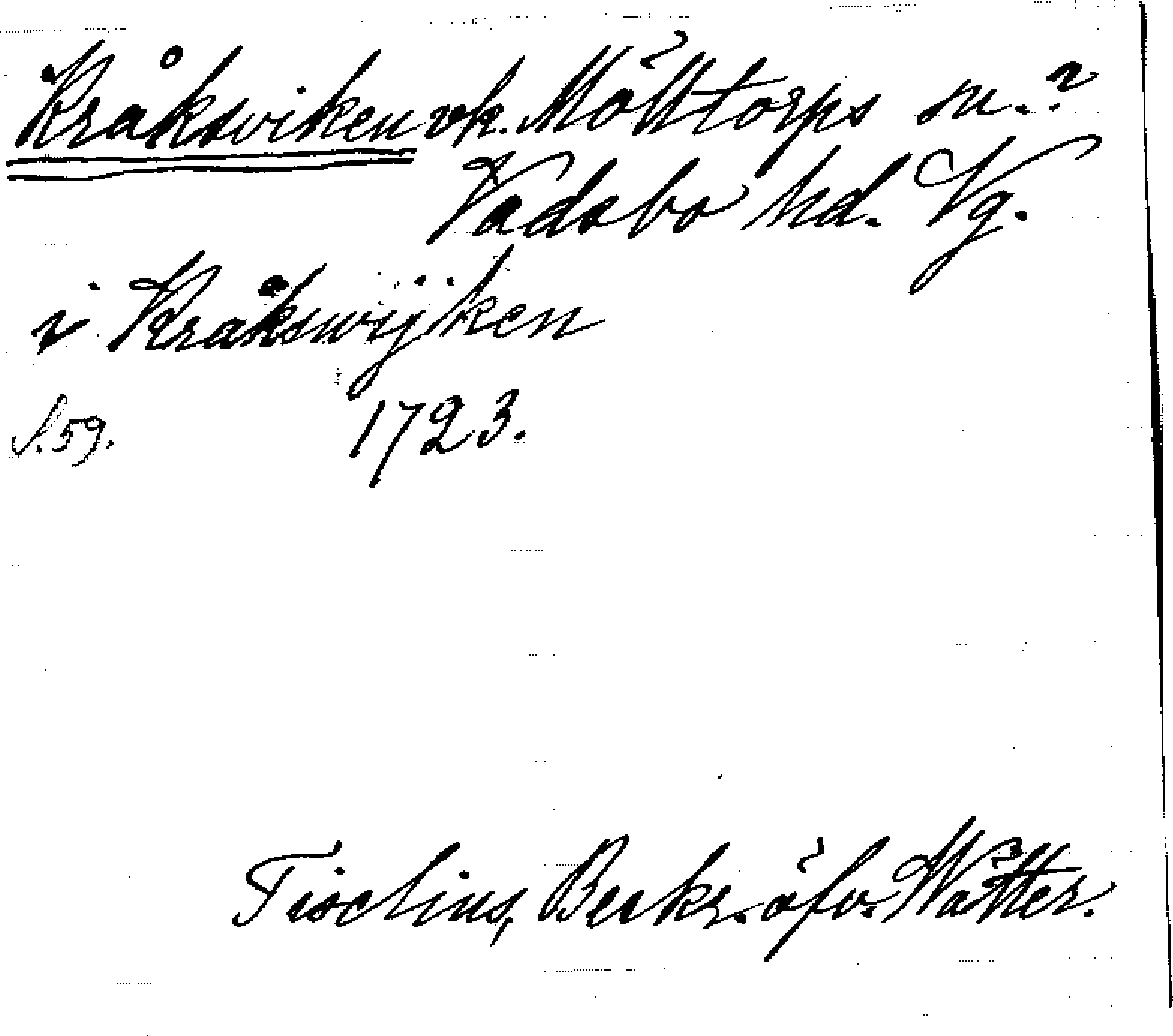 Kråksviken vk. Möltorps sn.?
Vadsbo hd. Vg.
i Kråkswijken
S. 59. 1723.
Tiselius, Beskr. öfv. Wätter.